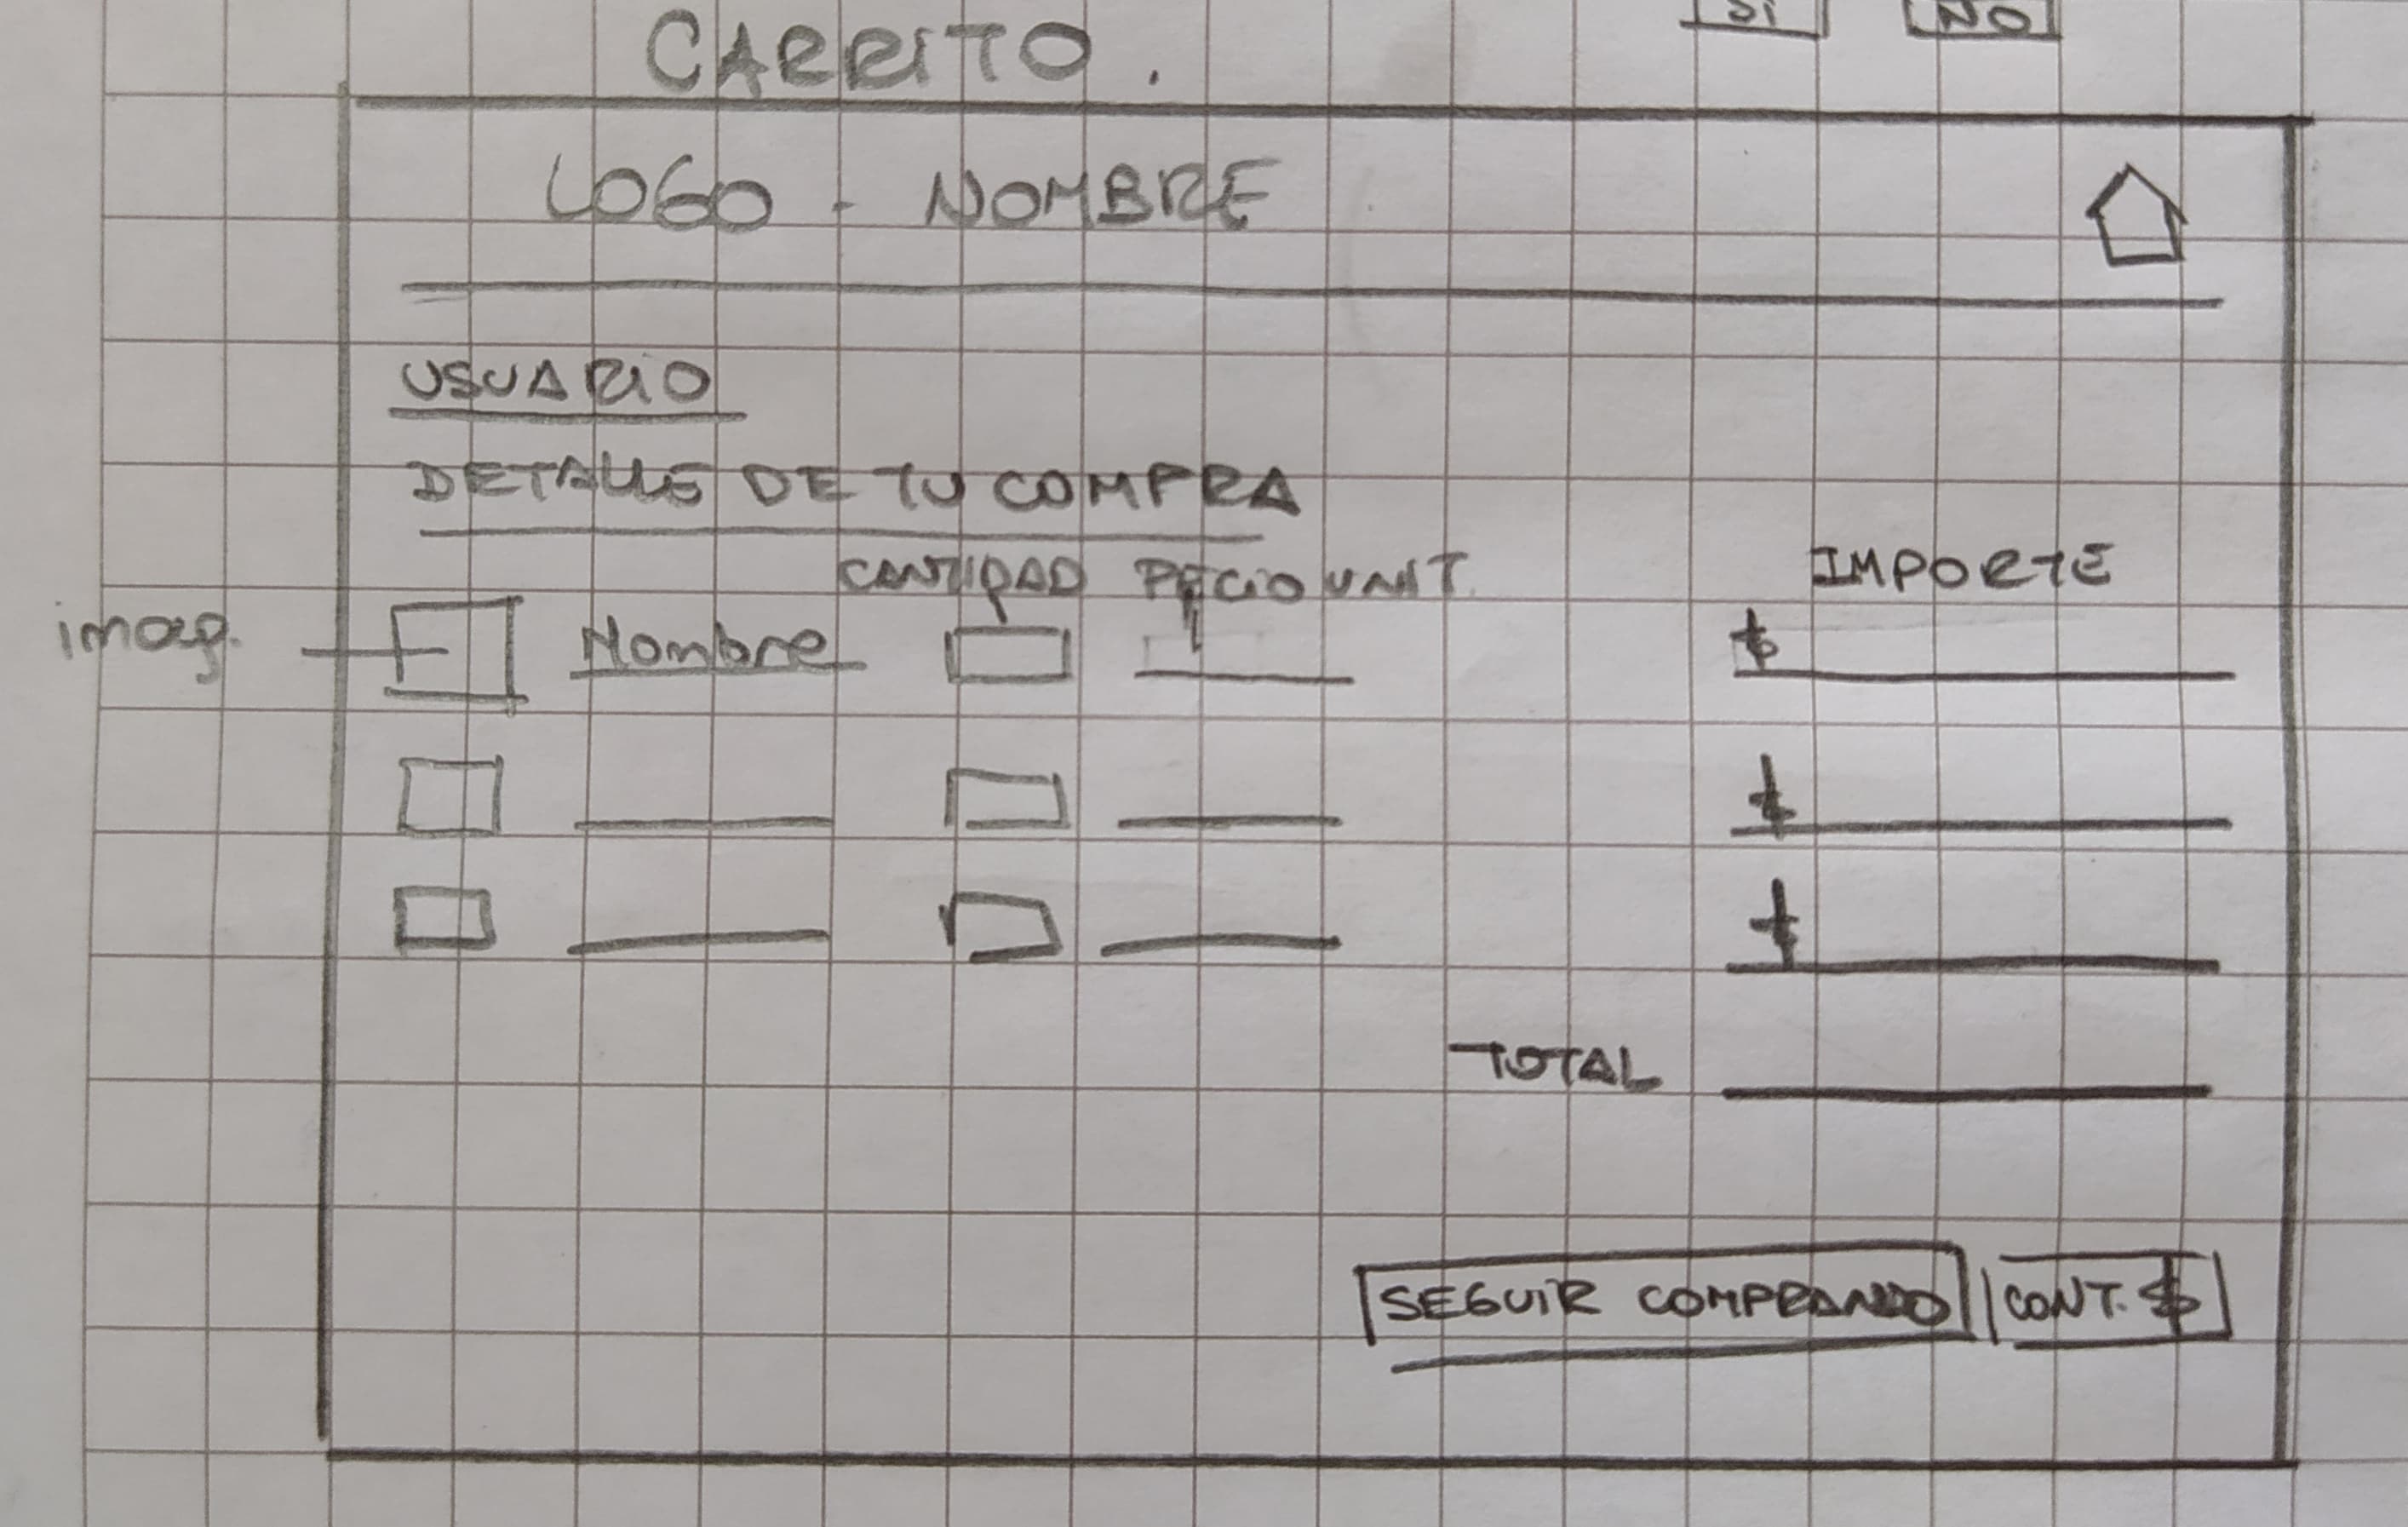 SI NO
CARRITO.
LOGO - NOMBRE
USUARIO
DETALLE DE TU COMPRA
CANTIDAD PRECIO UNIT. IMPORTE
imag. Nombre $
$
$
TOTAL
SEGUIR COMPRANDO CONT. $